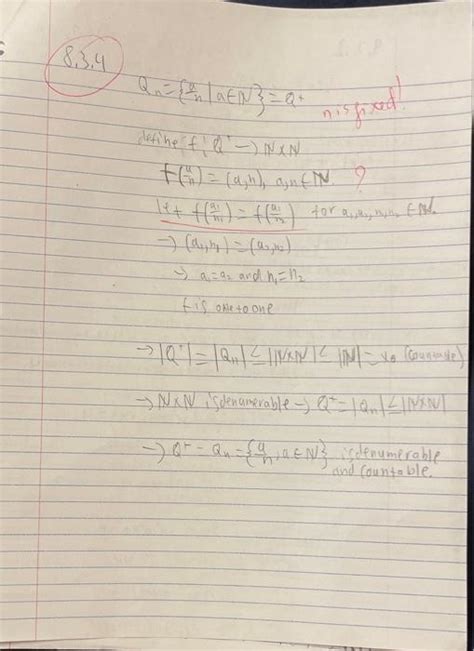 8.3.4
Qₙ = {a/n | a∈ℕ} = Q⁺
n is fixed!
define f: Q⁺ → ℕxℕ
f(a/n) = (a,n), a,n ∈ ℕ. ?
let f(a₁/n₁) = f(a₂/n₂) for a₁,a₂,n₁,n₂ ∈ ℕ.
→ (a₁,n₁) = (a₂,n₂)
→ a₁=a₂ and n₁=n₂
f is one to one
→ |Q⁺| = |Qₙ| ≤ |ℕxℕ| ≤ |ℕ| = ℵ₀ (countable)
→ ℕxℕ is denumerable → Q⁺ = |Qₙ| ≤ |ℕxℕ|
→ Q⁺ = Qₙ = {a/n, a∈ℕ} is denumerable
and countable.